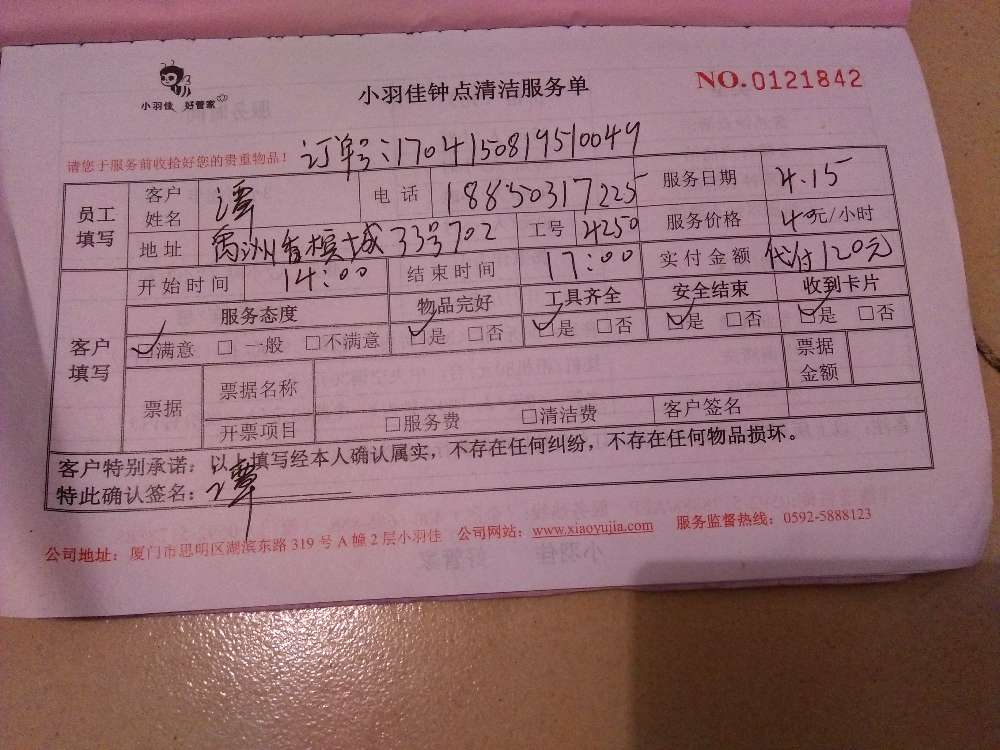 小羽佳 好管家
小羽佳钟点清洁服务单
NO.0121842
请您于服务前收拾好您的贵重物品!
订单号:1704150819510049
员工填写 客户姓名 谭 电话 18850317225 服务日期 4.15
地址 禹洲香槟城33号702 工号 4250 服务价格 40元/小时
客户填写 开始时间 14:00 结束时间 17:00 实付金额 代付120元
服务态度 物品完好 工具齐全 安全结束 收到卡片
☑满意 □一般 □不满意 ☑是 □否 ☑是 □否 ☑是 □否 ☑是 □否
票据 票据名称 票据金额
开票项目 □服务费 □清洁费 客户签名
客户特别承诺:以上填写经本人确认属实,不存在任何纠纷,不存在任何物品损坏。
特此确认签名:谭
公司地址:厦门市思明区湖滨东路319号A幢2层小羽佳 公司网站:www.xiaoyujia.com 服务监督热线:0592-5888123